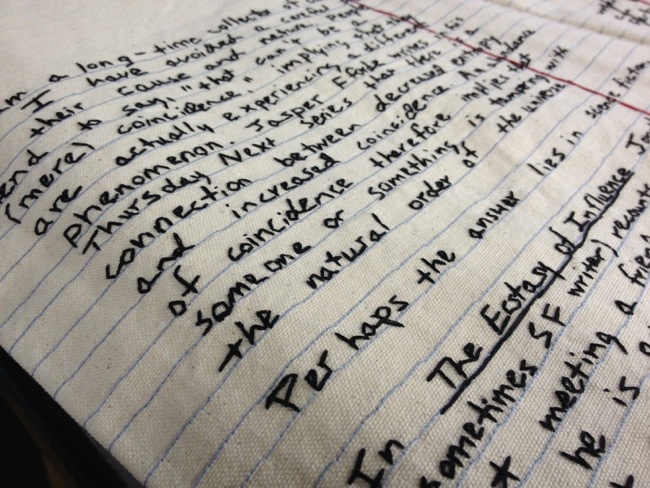 m a long-time collector of
I have avoided a
their cause and nature.
end to say, "that can't be a
(mere) coincidence," implying that they
are actually experiencing a different
phenomenon. Jasper Fforde writes in his
Thursday Next series that there is a
connection between decreased entropy
and increased coincidence. An abundance
of coincidence therefore implies that
someone or something is tampering with
the natural order of the universe
Perhaps the answer lies in science fiction
In The Ecstasy of Influence
sometimes SF writer) recounts
meeting a friend
he is